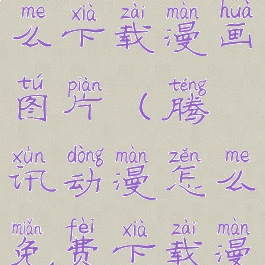 me xià zài màn huà
么下载漫画
tú piàn téng
图片（腾
xùn dòng màn zěn me
讯动漫怎么
miǎn fèi xià zài màn
免费下载漫